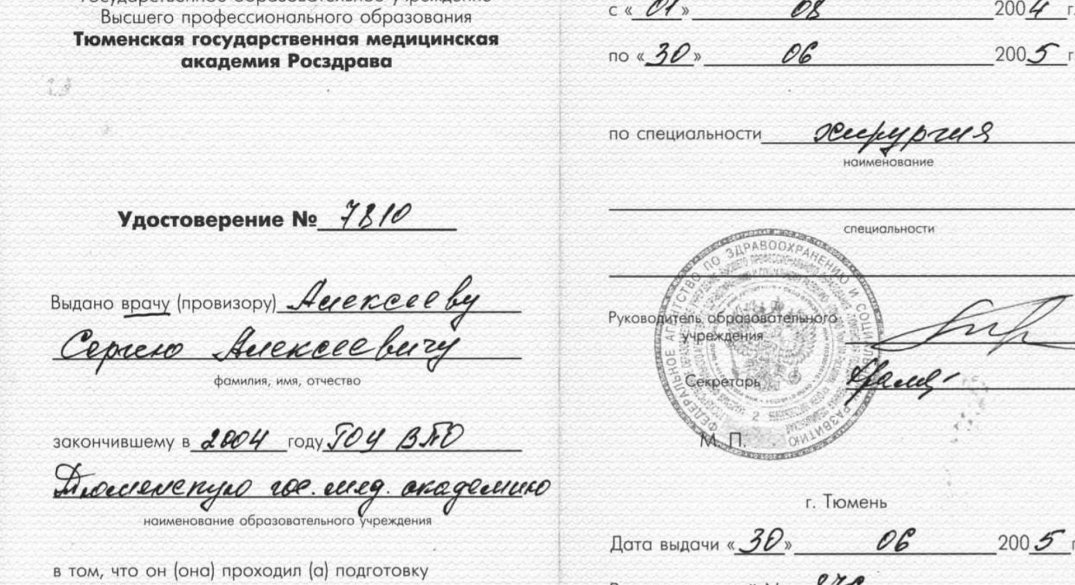 Государственное образовательное учреждение
Высшего профессионального образования
Тюменская государственная медицинская
академия Росздрава
Удостоверение № 7810
Выдано врачу (провизору) Алексееву
Сергею Алексеевичу
фамилия, имя, отчество
закончившему в 2004 году ГОУ ВПО
Тюменскую гос. мед. академию
наименование образовательного учреждения
в том, что он (она) проходил (а) подготовку
с « 01 » 08 2004 г.
по « 30 » 06 2005 г
по специальности хирургия
наименование
специальности
Руководитель образовательного
учреждения
Секретарь
М. П.
ФЕДЕРАЛЬНОЕ АГЕНТСТВО ПО ЗДРАВООХРАНЕНИЮ И СОЦИАЛЬНОМУ РАЗВИТИЮ
2
г. Тюмень
Дата выдачи « 30 » 06 2005 г